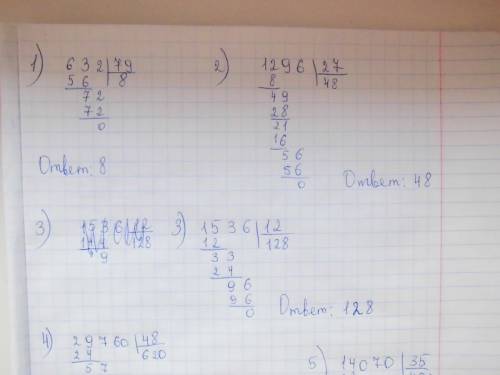 1) 632 | 79
56 8
72
72
0
Ответ: 8
2) 1296 | 27
8 48
49
28
21
16
56
56
0
Ответ: 48
3)
128
9
3) 1536 | 12
12 128
33
24
96
96
0
Ответ: 128
4) 29760 | 48
24 620
57
5) 14070 | 35